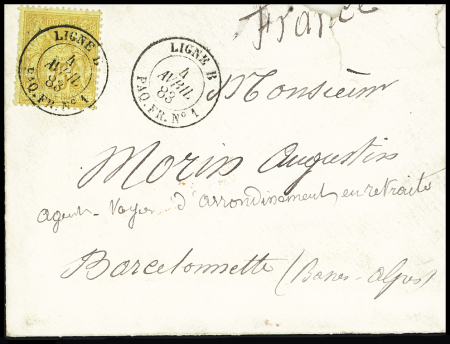 France
LIGNE B
4
AVRIL
83
PAQ. FR. N° 1
LIGNE B
4
AVRIL
83
PAQ. FR. N° 1
Monsieur
Morin Augustin
agent-Voyer d'arrondissement en retraite
Barcelonnette (Basses-Alpes)